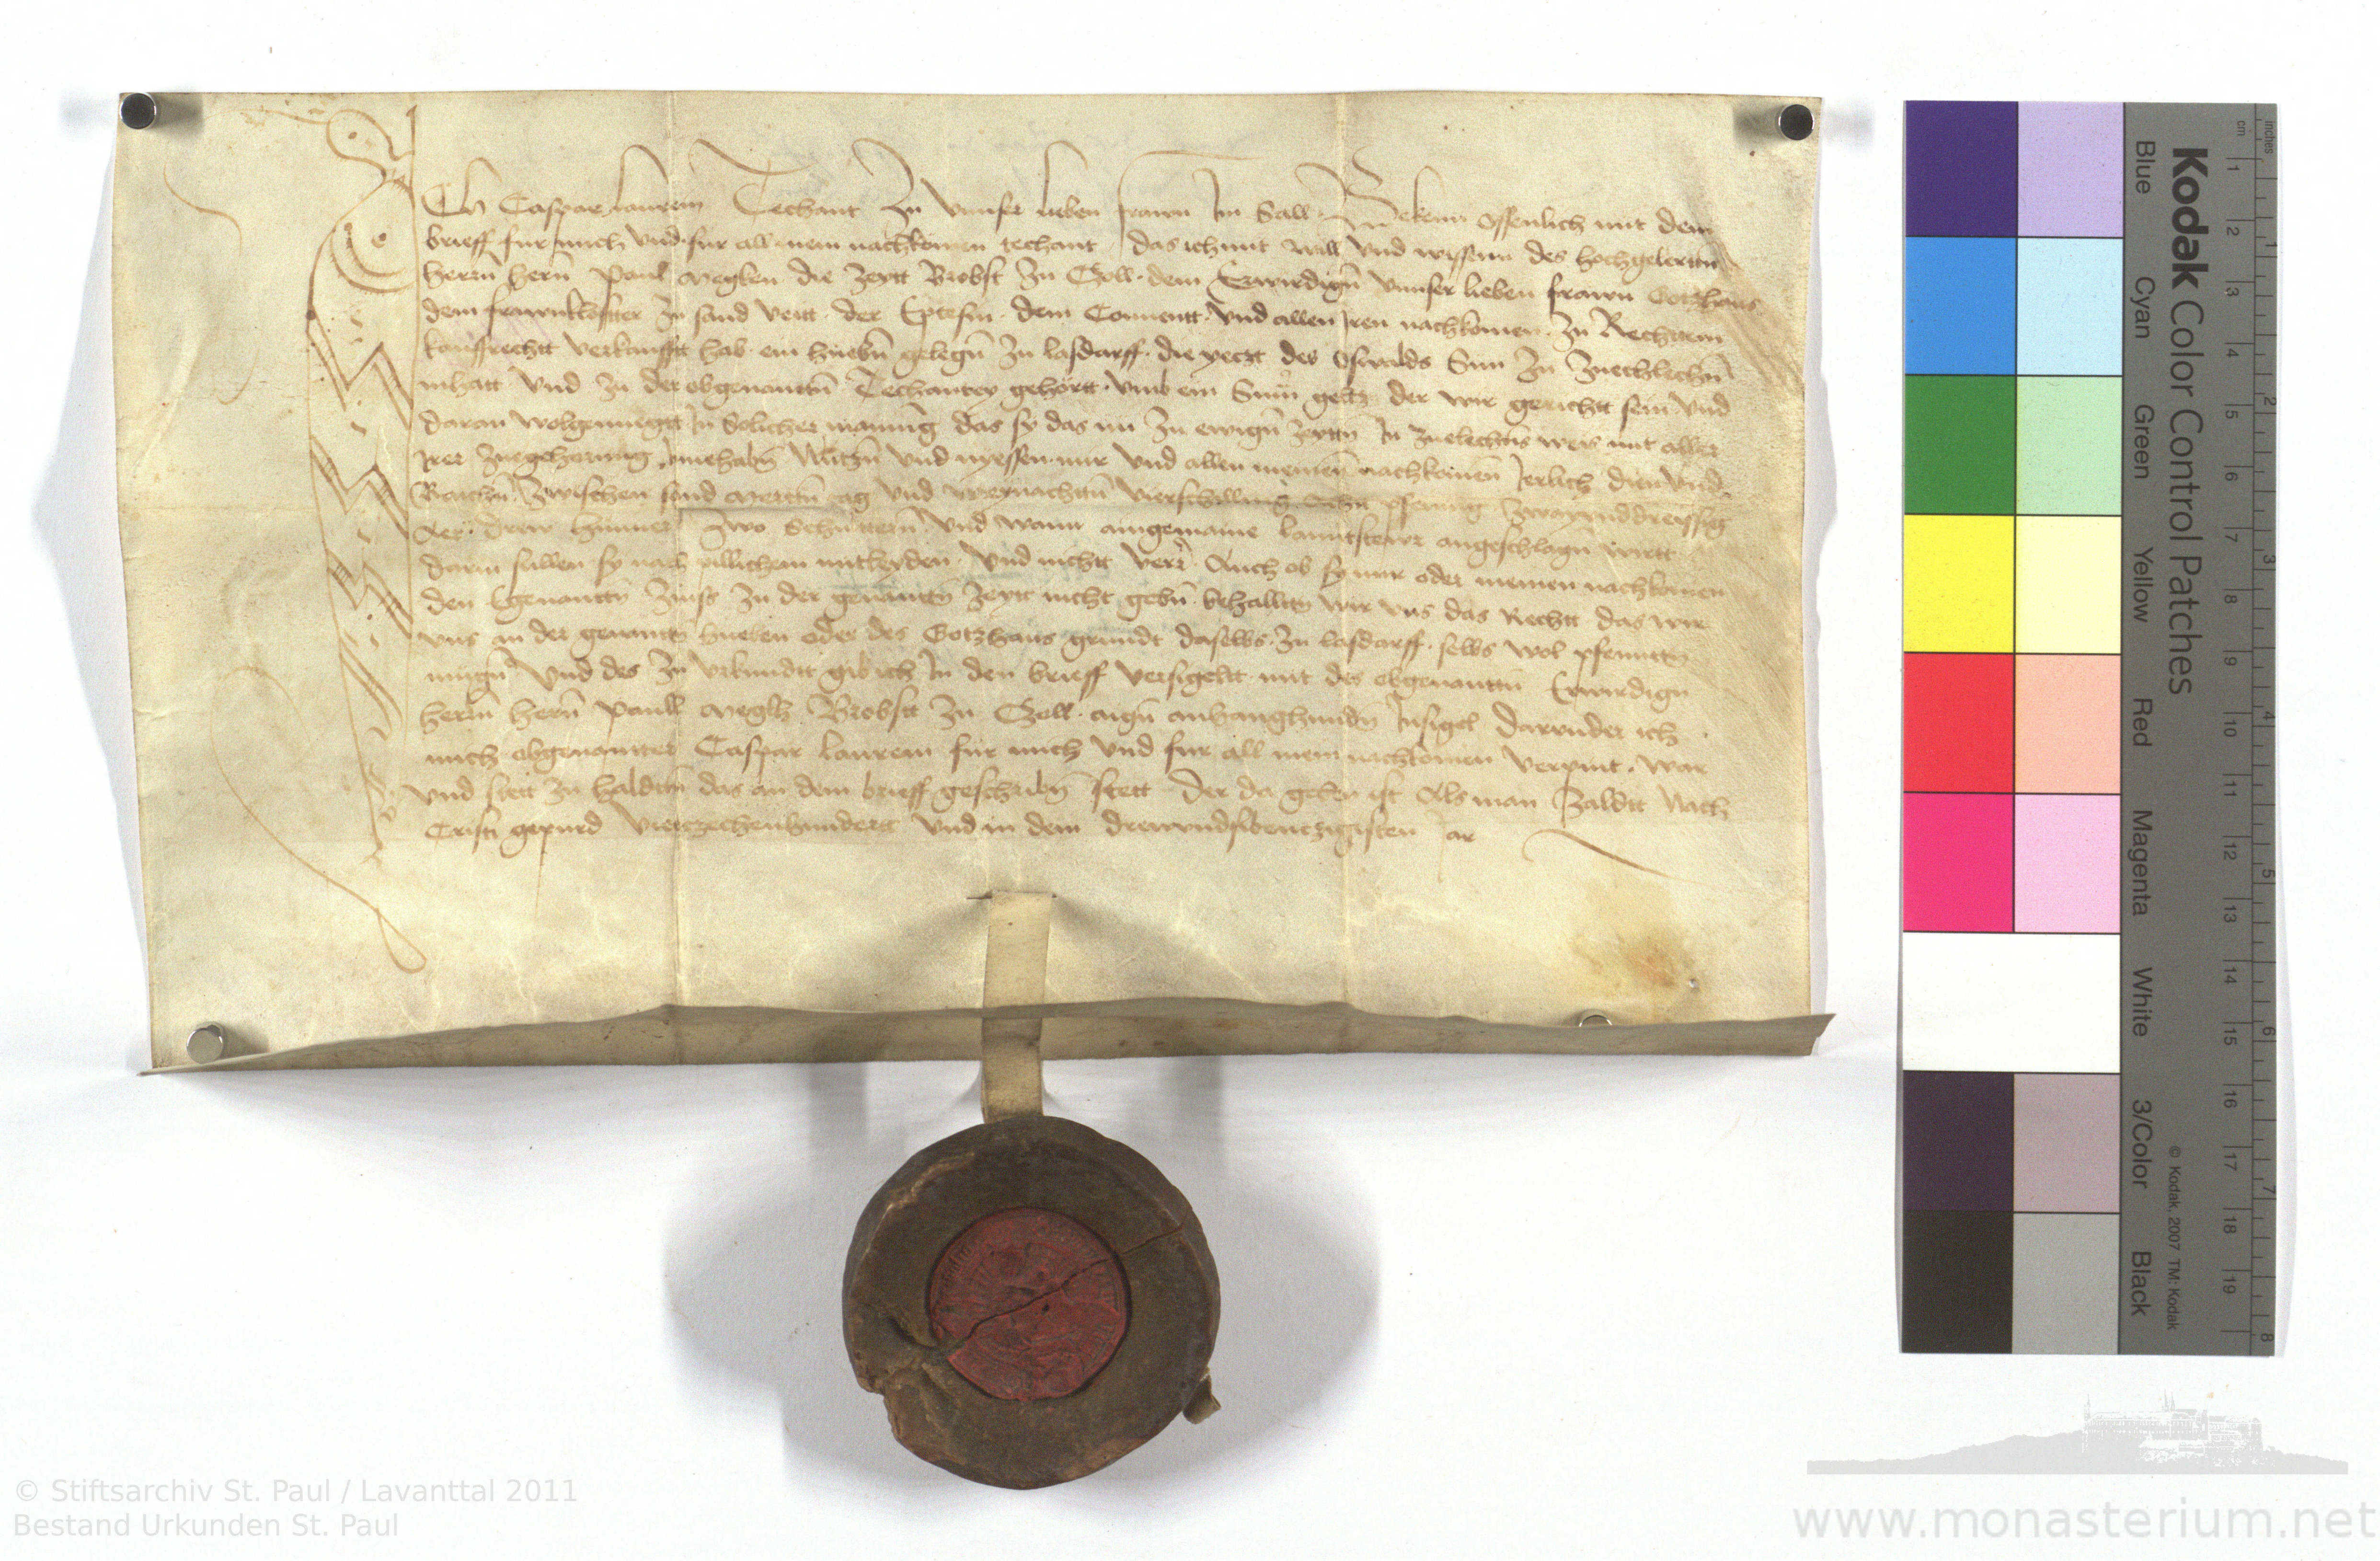 ICh Caspar laurein Techant Zu Vnnser lieben frawn Im Sall Bekenn offenlich mit dem
brieff fur mich vnd fur all mein nachkomen techant das ich mit will vnd wissenn des hochgelerttn
herrn hern Paul die zeytt Brobst zu Czoll dem Erwirdign vnnser lieben frawn Gotzhaus
dem frawnkloster zu sand Veitt der Eptesin dem Conuentt vnd allen Iren nachkomen zu Rechttem
kauffrechtt verkaufftt hab ein huebn gelegn zu lasdarff die yeczt des Oswalds Sun zu
inhatt vnd zu der obgenanttn Techantey gehortt vmb ein Sum geltz der wir gerichtt sein vnd
daran wolgenuegtt In solicher maynung das sy das nu zu ewign zeyttn In weis mit aller
Irer zuegehorung Innehabn Nutzn vnd nyessen mir vnd allen meinen nachkomen Ierlich dien vnd
Raichn zwischen sand tag vnd weynachttn vierschilling pfening zwayunddreyssig
drew huner zwo Schulttern vnd wann ain gemaine lanntstewr angeschlagn wirtt
darin sullen sy nach pillichem mitleyden vnd nichtt verr Auch ob sy mir oder meinen nachkomen
den Egenanttn zinss zu der genanttn zeytt nicht gebn behalltn wir vns das Rechtt das wir
vns an der genantn hueben oder des Gotzhaus grundt daselbs zu lasdarff selbs wol pfenntn
mugn vnd des zu vrkundtt gib ich In den brieff versigeltt mit des obgenanttn Erwirdign
herrn hern Paull Brobstt zu Czoll aign anhanghundn Insigel darunder ich
mich obgenanter Caspar laurein fur mich vnd fur all mein nachkomen verpint war
vnd stett zu haldtn das an dem brieff geschribn stett Der da geben ist Als man zaldtt Nach
Cristi gepurd vierzechenhundertt vnd in dem drewundsibentzigisten Iar
Kodak Color Control Patches
Blue Cyan Green Yellow Red Magenta White 3/Color Black
© Kodak, 2007 TM: Kodak
inches 1 2 3 4 5 6 7 8
cm 1 2 3 4 5 6 7 8 9 10 11 12 13 14 15 16 17 18 19
© Stiftsarchiv St. Paul / Lavanttal 2011
Bestand Urkunden St. Paul
www.monasterium.net